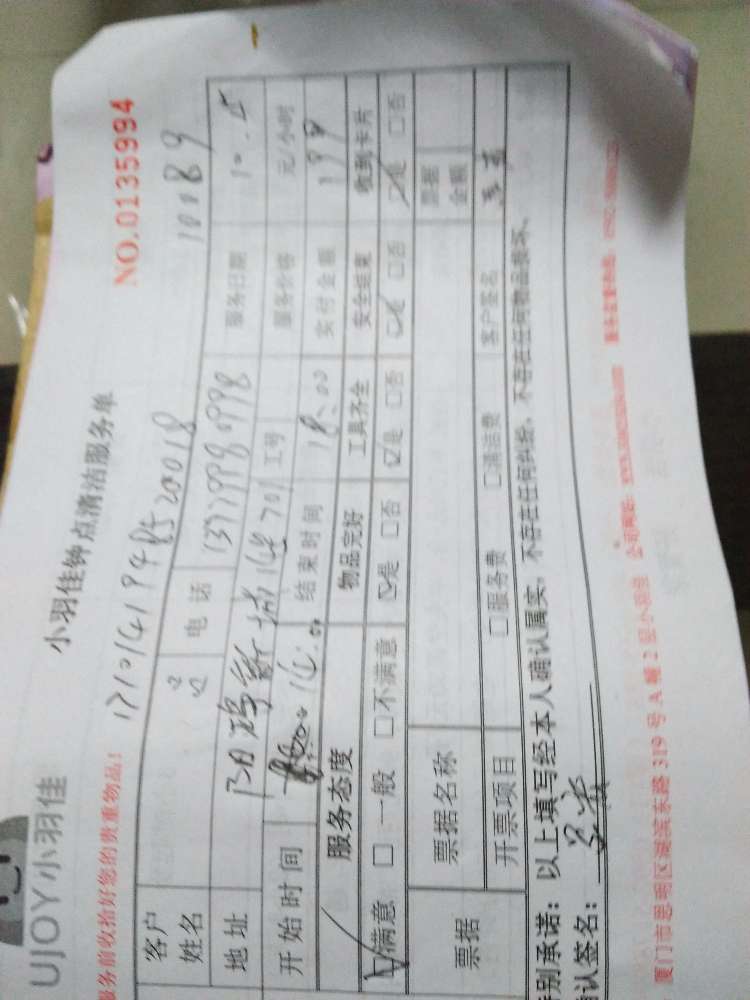 UJOY小羽佳
小羽佳钟点清洁服务单
NO.0135994
服务前收拾好您的贵重物品!
10089
客户姓名
电话 13799980998
服务日期 10.5
地址
701
工号
服务价格
元/小时
开始时间
结束时间 18:00
实付金额 198
服务态度
物品完好
工具齐全
安全结束
收到卡片
☑满意 □一般 □不满意
☑是 □否
☑是 □否
☑是 □否
☑是 □否
票据
票据名称
票据金额
开票项目
□服务费 □清洁费
客户签名
特别承诺:以上填写经本人确认属实,不存在任何纠纷,不存在任何物品损坏、
确认签名:
厦门市思明区湖滨东路319号A幢2层小羽佳
公司网站: